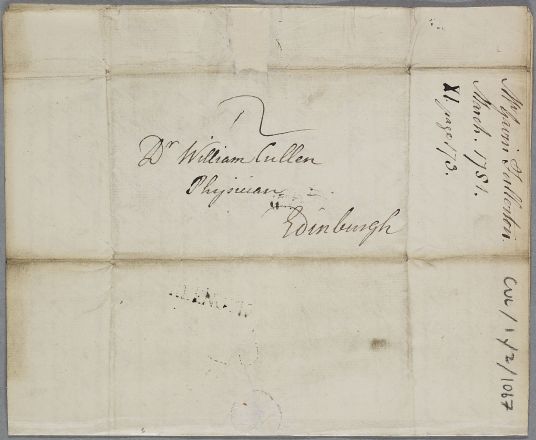 12
Dr William Cullen
Physician
Edinburgh
Mr Gavin Fullerton.
March. 1781.
XI. page 173.
CUL/1/2/1067